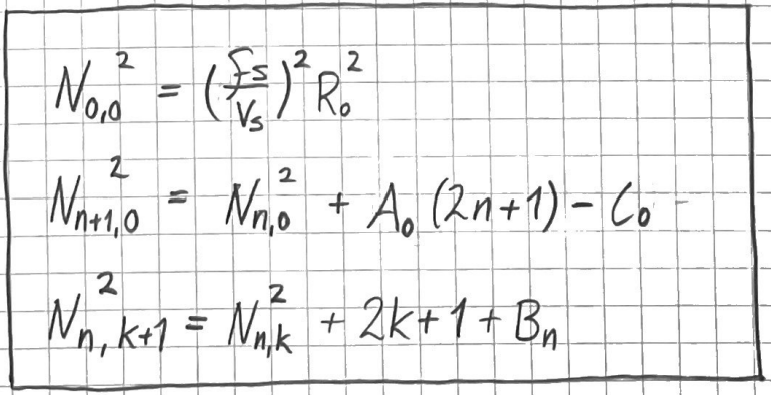 N₀,₀² = (fs/Vs)² R₀²
Nₙ₊₁,₀² = Nₙ,₀² + A₀ (2n+1) - C₀
Nₙ,ₖ₊₁² = Nₙ,ₖ² + 2k+1 + Bₙ